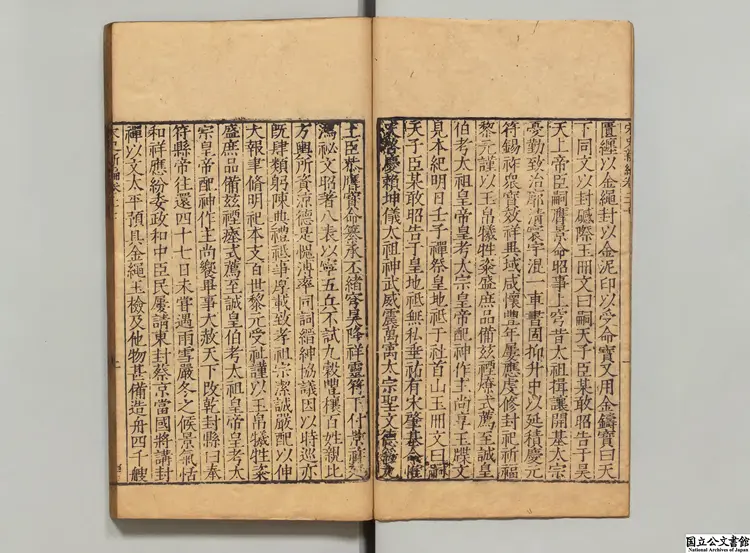 宋史新編卷二十
匱纏以金繩封以金泥印以受命寶又用金鑄寶曰天
下同文以封礛際玉冊文曰嗣天子臣某敢昭告于昊
天上帝臣嗣膺景命昭事上穹昔太祖揖讓開基太宗
憂勤致治廓清寰宇混一車書固抑升中以延積慶元
符錫祚衆寶效祥異域咸懷豐年屢應虔修封祀祈福
黎元謹以玉帛犧牲粢盛庶品備玆禋燎式薦至誠皇
伯考太祖皇帝皇考太宗皇帝配神作主尚享玉牒文
見本紀明日壬子禪祭皇地祇于社首山玉冊文曰嗣
天子臣某敢昭告于皇地祇無私垂祐有宋肇基命惟
天啓慶賴坤儀太祖神武威震萬寓太宗聖文德綏九
土臣恭膺寶命纂承丕緒穹昊降祥靈符下付景祚延
鴻祕文昭著八表以寧五兵不試九穀豐穰百姓親比
方輿所資涼德是愧溥率同詞縉紳協議因以時巡亦
既肆類躬陳典禮祗事厚載致孝祖宗潔誠嚴配以伸
大報聿脩明祀本支百世黎元受祉謹以玉帛犧牲粢
盛庶品備玆禋瘞式薦至誠皇伯考太祖皇帝皇考太
宗皇帝配神作主尚饗畢事大赦天下改乾封縣曰奉
符縣帝往還四十七日未嘗遇雨雪嚴冬之候景氣恬
和祥應紛委政和中臣民屢請東封蔡京當國將講封
禪以文太平預具金繩玉檢及他物甚備造舟四千艘
国立公文書館
National Archives of Japan